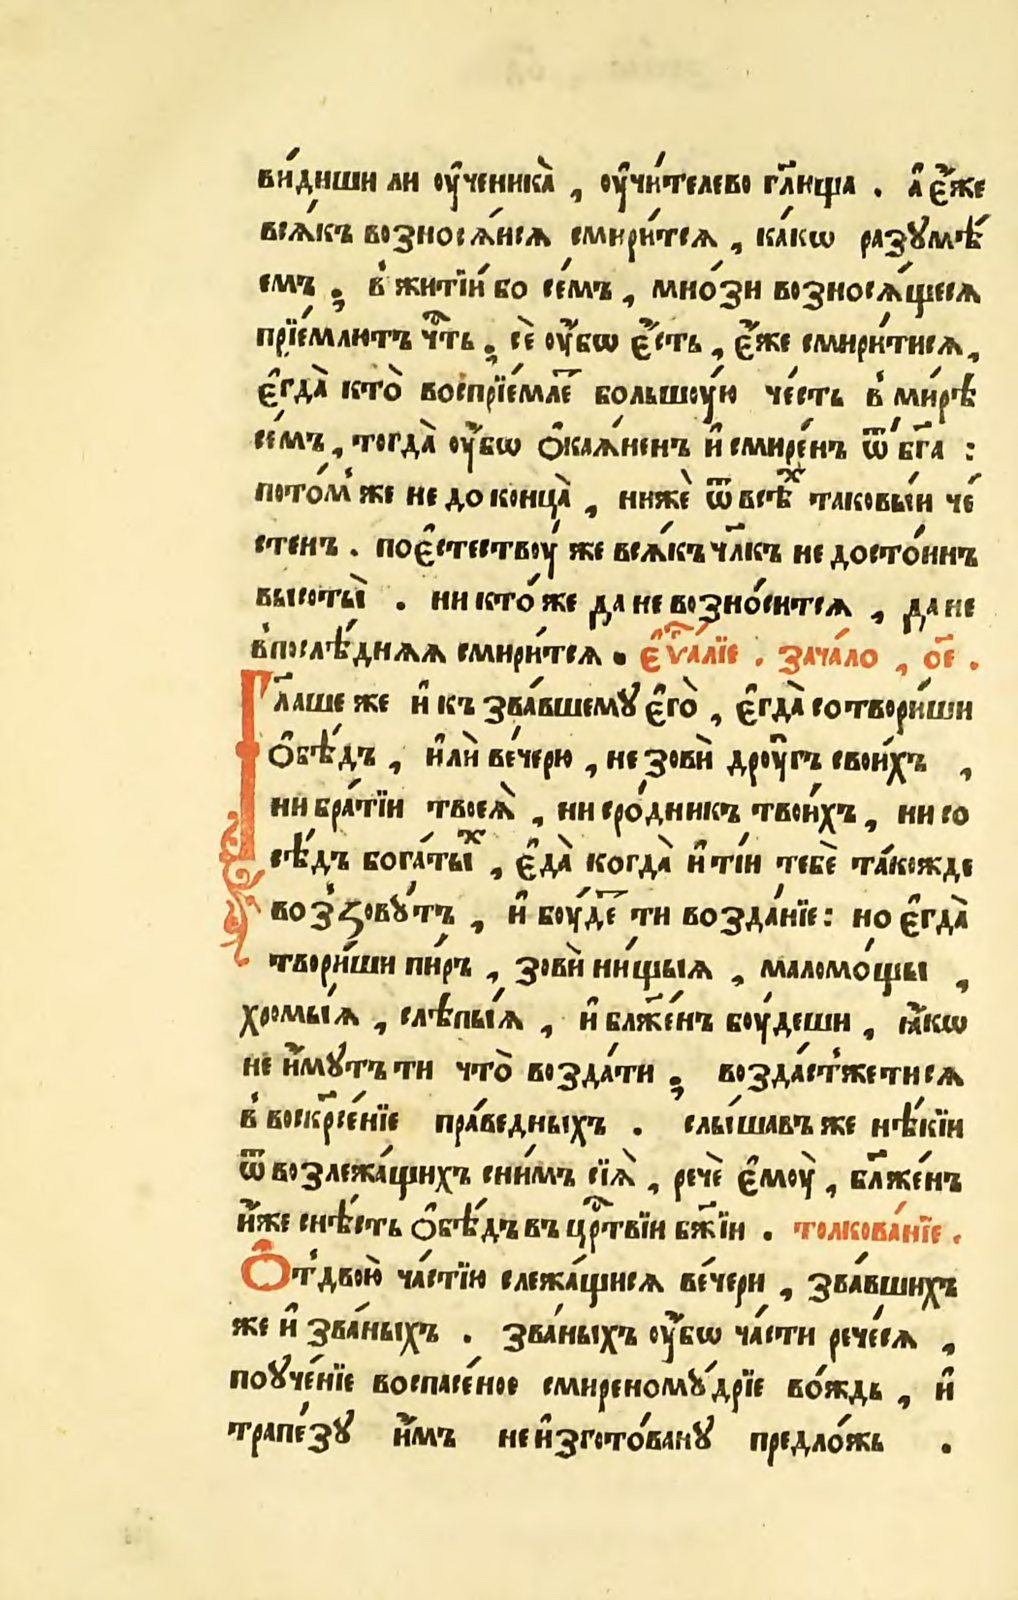 ви́диши ли оу҆ченика̀ , оу҆чи́телево гл҃ища . а҆ є҆́же
всѧ́къ возносѧ́исѧ смири́тсѧ , ка́кѡ разꙋмѣ́
емъ ; в̾ житїи́ бо се́мъ , мно́зи возносѧ́щесѧ
прїе́млютъ чⷭ҇ть ; сѐ оу҆́бѡ є҆́сть , є҆́же смири́тисѧ ,
є҆гда̀ кто̀ воспрїе́млеⷮ большоу́ю че́сть в̾ ми́рѣ
се́мъ , тогда̀ оу҆́бѡ ѻ҆каѧ́ненъ и҆ смире́нъ ѿ бг҃а :
пото́м̾ же не до конца̀ , нижѐ ѿ всѣⷯ таковы́и че́
стенъ . по є҆стествоу́ же всѧ́къ чл҃къ не досто́инъ
высоты̀ . никто́ же да не возно́ситсѧ , да не
в̾ послѣ́днѧѧ смири́тсѧ . є҆ѵⷢ҇алїе . зача́ло , о҃е .
Гл҃аше же и҆ къ зва́вшемꙋ є҆го̀ , є҆гда̀ сотвори́ши
ѻ҆бѣ́дъ , и҆лѝ ве́черю , не зовѝ дроу҆гъ свои́хъ ,
ни бра́тїи твоеѧ̀ , ни сро́дникъ твои́хъ , ни со
сѣ́дъ бога́тыⷯ , є҆да̀ когда̀ и҆ ті́и тебѐ та́кожде
воз̾ꙁовꙋ́тъ , и҆ боу́деⷮ ти возда́нїе : но є҆гда̀
твори́ши пи́ръ , зовѝ ни́щыѧ , маломо́щы ,
хромы́ѧ , слѣпы́ѧ , и҆ бл҃же́нъ боу́деши , ꙗ҆́кѡ
не и҆́мꙋтъ ти что̀ возда́ти ; возда́ст̾жетисѧ
в̾ воскр҃се́нїе пра́ведныхъ . слы́шавъ же нѣ́кїи
ѿ возлежа́щихъ сни́мъ сїѧ̀ , речѐ є҆моу̀ , бл҃же́нъ
и҆́же снѣ́сть ѻ҆бѣ́дъ въ црⷭ҇твїи бж҃їи . толкова́нїе .
Ѻ҆т̾ двою̀ ча́стїю слежа́щисѧ ве́чери , зва́вшихъ
же и҆ зва́ныхъ . зва́ныхъ оу҆́бѡ ча́сти рече́сѧ ,
поꙋче́нїе воспасе́ное смиреномꙋ́дрїе во́ждь , и҆
трапе́зꙋ и҆́мъ не и҆згото́ванꙋ предло́жь .